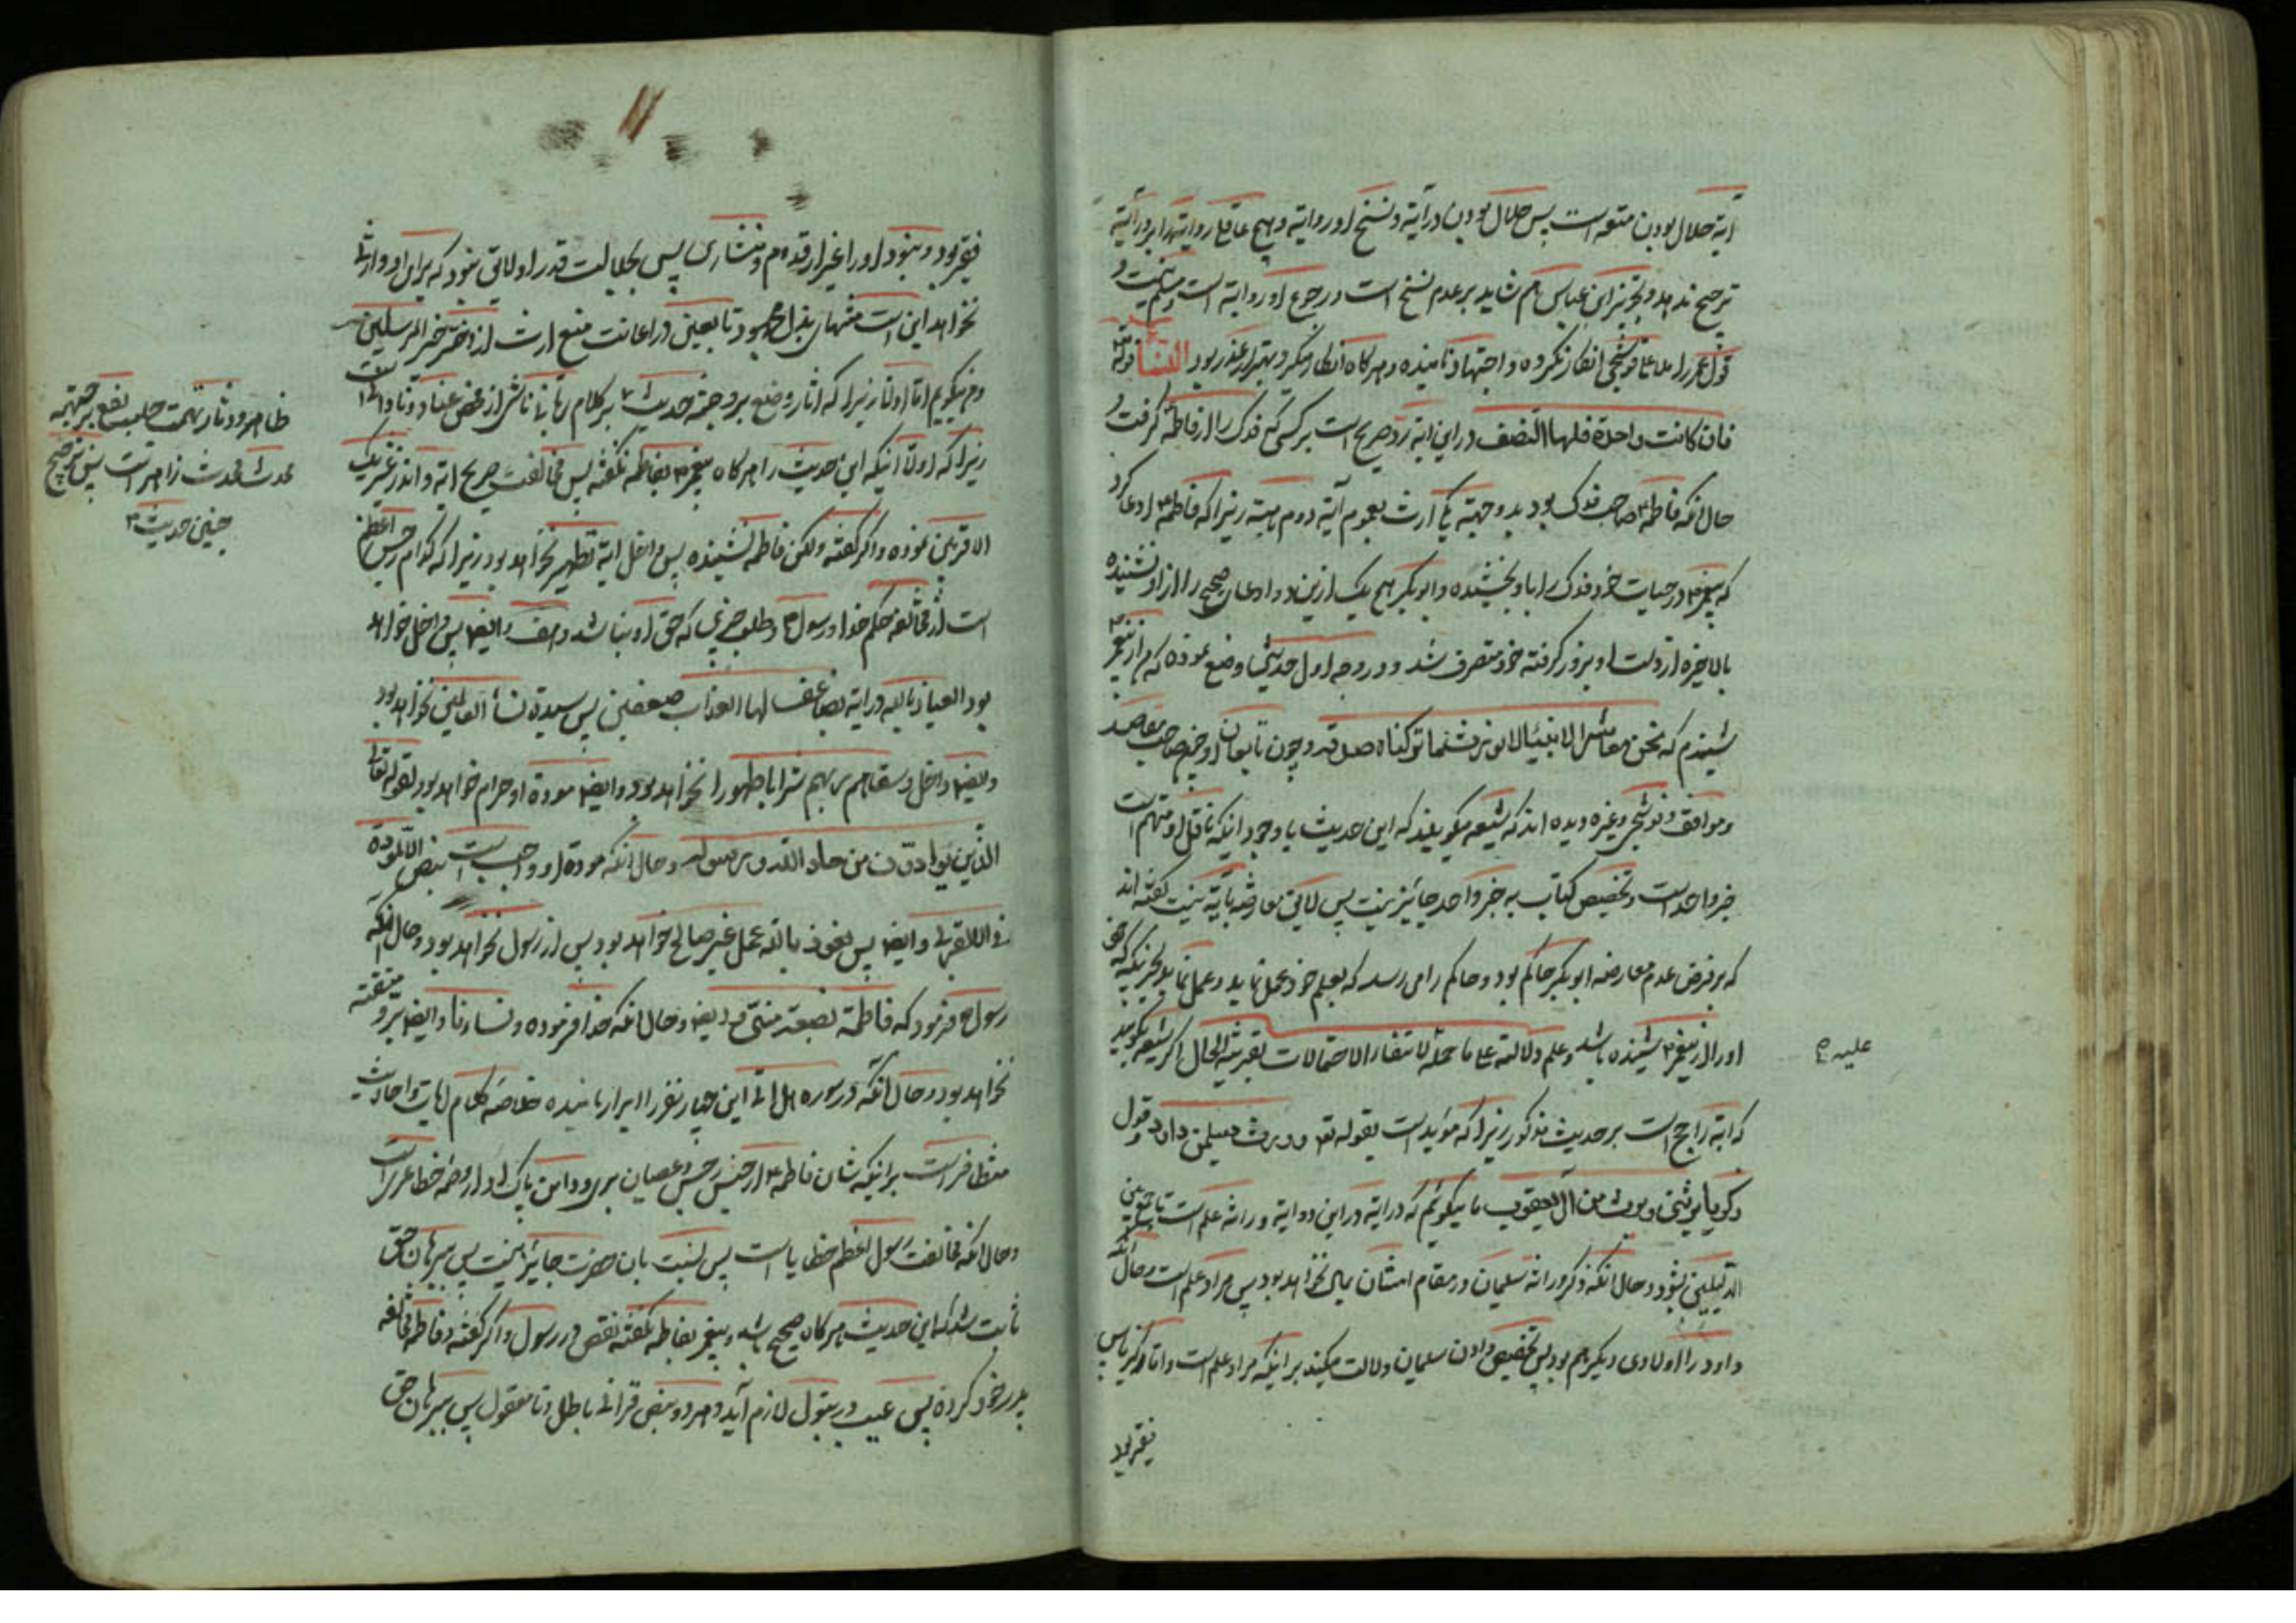 آیه حلال بودن متعه است پس حلال بودن درایة و نسخ او روایة و هیچ عاقل روایترا بر درایة
ترجیح ندهد و تجویز ابن عباس هم شاید بر عدم نسخ است و رجوع او روایة است و مسلم نیست و
قول عمر را ملا علی قوشجی انکار نکرده و اجتهاد نامیده و هرکاه انکار میکرد بهتر از عذر بود النسا قوله
فان کانت واحدة فلها النصف در این ایه رد صریح است بر کسی که فدک را از فاطمه کرفت و
حال انکه فاطمه صاحب فدک بود بدو جهته یکی ارث بعموم آیه دوم هبه زیرا که فاطمه ادعا کرد
که پیغمبر در حیات خود فدک را باو بخشیده و ابوبکر هیچ یک ازین دو ادعای صحیح را از او نشنیده
بالاخره از دست او بزور کرفته خود متصرف شد و در وجه اول حدیثی وضع نموده که من از پیغمبر
شنیدم که نحن معاشر الانبیاء لا نورث فما ترکناه صدقه و چون تابعان او چون صاحب مقاصد
و مواقف و قوشجی و غیره دیده اند که شیعه میکویند که این حدیث با وجود اینکه ناقل او متهم است
خبر واحد است و تخصیص کتاب به خبر واحد جایز نیست پس لایق معارضه بآیه نیست کفته اند
که بر فرض عدم معارضه ابوبکر حاکم بود و حاکم را می رسد که بعلم خود عمل نماید و عمل نماید بخبریکه که خود
او را از پیغمبر شنیده باشد و علم دلالته علی ما حمله لانتفاء الاحتمالات بقرینة الحال اکر شیعه بکوید
علیه
که ایه راجح است بر حدیث مذکور زیرا که موید است بقوله تع و ورث سلیمن داود و قول
زکریا یرثنی و یرث من آل یعقوب ما میکوئیم که درایة در این دو ایه وراثة علم است تا جمع بین
الدلیلین بشود و حال انکه ذکر وراثه سلیمان در مقام امتنان مالی نخواهد بود پس مراد علم است و حال انکه
داود را اولادی دیکر هم بود پس تخصیص دادن سلیمان دلالت میکند بر اینکه مراد علم است و اما زکریا پس
فقیر بود
فقیر بود و نبود او را غیر از قدوم و منشاری پس بجلالت قدر او لایق نبود که برای او وارثی
نخواهد این است منتهای بذل جهود تابعین در اعانت منع ارث از دختر خیر المرسلین
زیرا که اولا اینکه این حدیث را هرکاه پیغمبر بفاطمه نکفته پس مخالفت صریح ایه و انذر عشیرتک
الاقربین نموده و اکر کفته ولکن فاطمه نشنیده پس داخل ایه تطهیر نخواهد بود زیرا که کدام رجس اعظم
است از مخالفه حکم خدا و رسول و طلب چیزی که حق او نباشد و ایضا پس داخل خواهد
بود العیاذ بالله در ایه یضاعف لها العذاب ضعفین پس سیدة نساء العالمین نخواهد بود
و ایضا داخل و سقاهم ربهم شرابا طهورا نخواهد بود و ایضا مودة او حرام خواهد بود لقوله تعالی
الذین یوادون من حاد الله و رسوله و حال انکه مودة او واجب است بنص الا المودة
فی القربی و ایضا پس نعوذ بالله عمل غیر صالح خواهد بود پس از رسول نخواهد بود و حال انکه
رسول فرمود که فاطمة بضعة منی و ایضا و حال انکه خدا فرموده و نساءنا و ایضا بره و متقیه
نخواهد بود و حال انکه در سوره هل اتی این چهار نفر را ابرار نامیده خلاصه کلام ایات و احادیث
متظافر است بر اینکه شان فاطمه از جنس رجس و عصیان بری و دامن پاک او از وصمه خطا عری است
و حال انکه مخالفت رسول اعظم خطایا است پس نسبت بان حضرت جایز نیست پس ببرهان حق
ثابت شد که این حدیث هرکاه صحیح باشد و پیغمبر بفاطمه نکفته نقص در رسول و اکر کفته و فاطمه مخالفه
پدر خود کرده پس عیب در بتول لازم آید و هر دو بنص قرانی باطل و نا معقول پس ببرهان حق
چنین حدیث